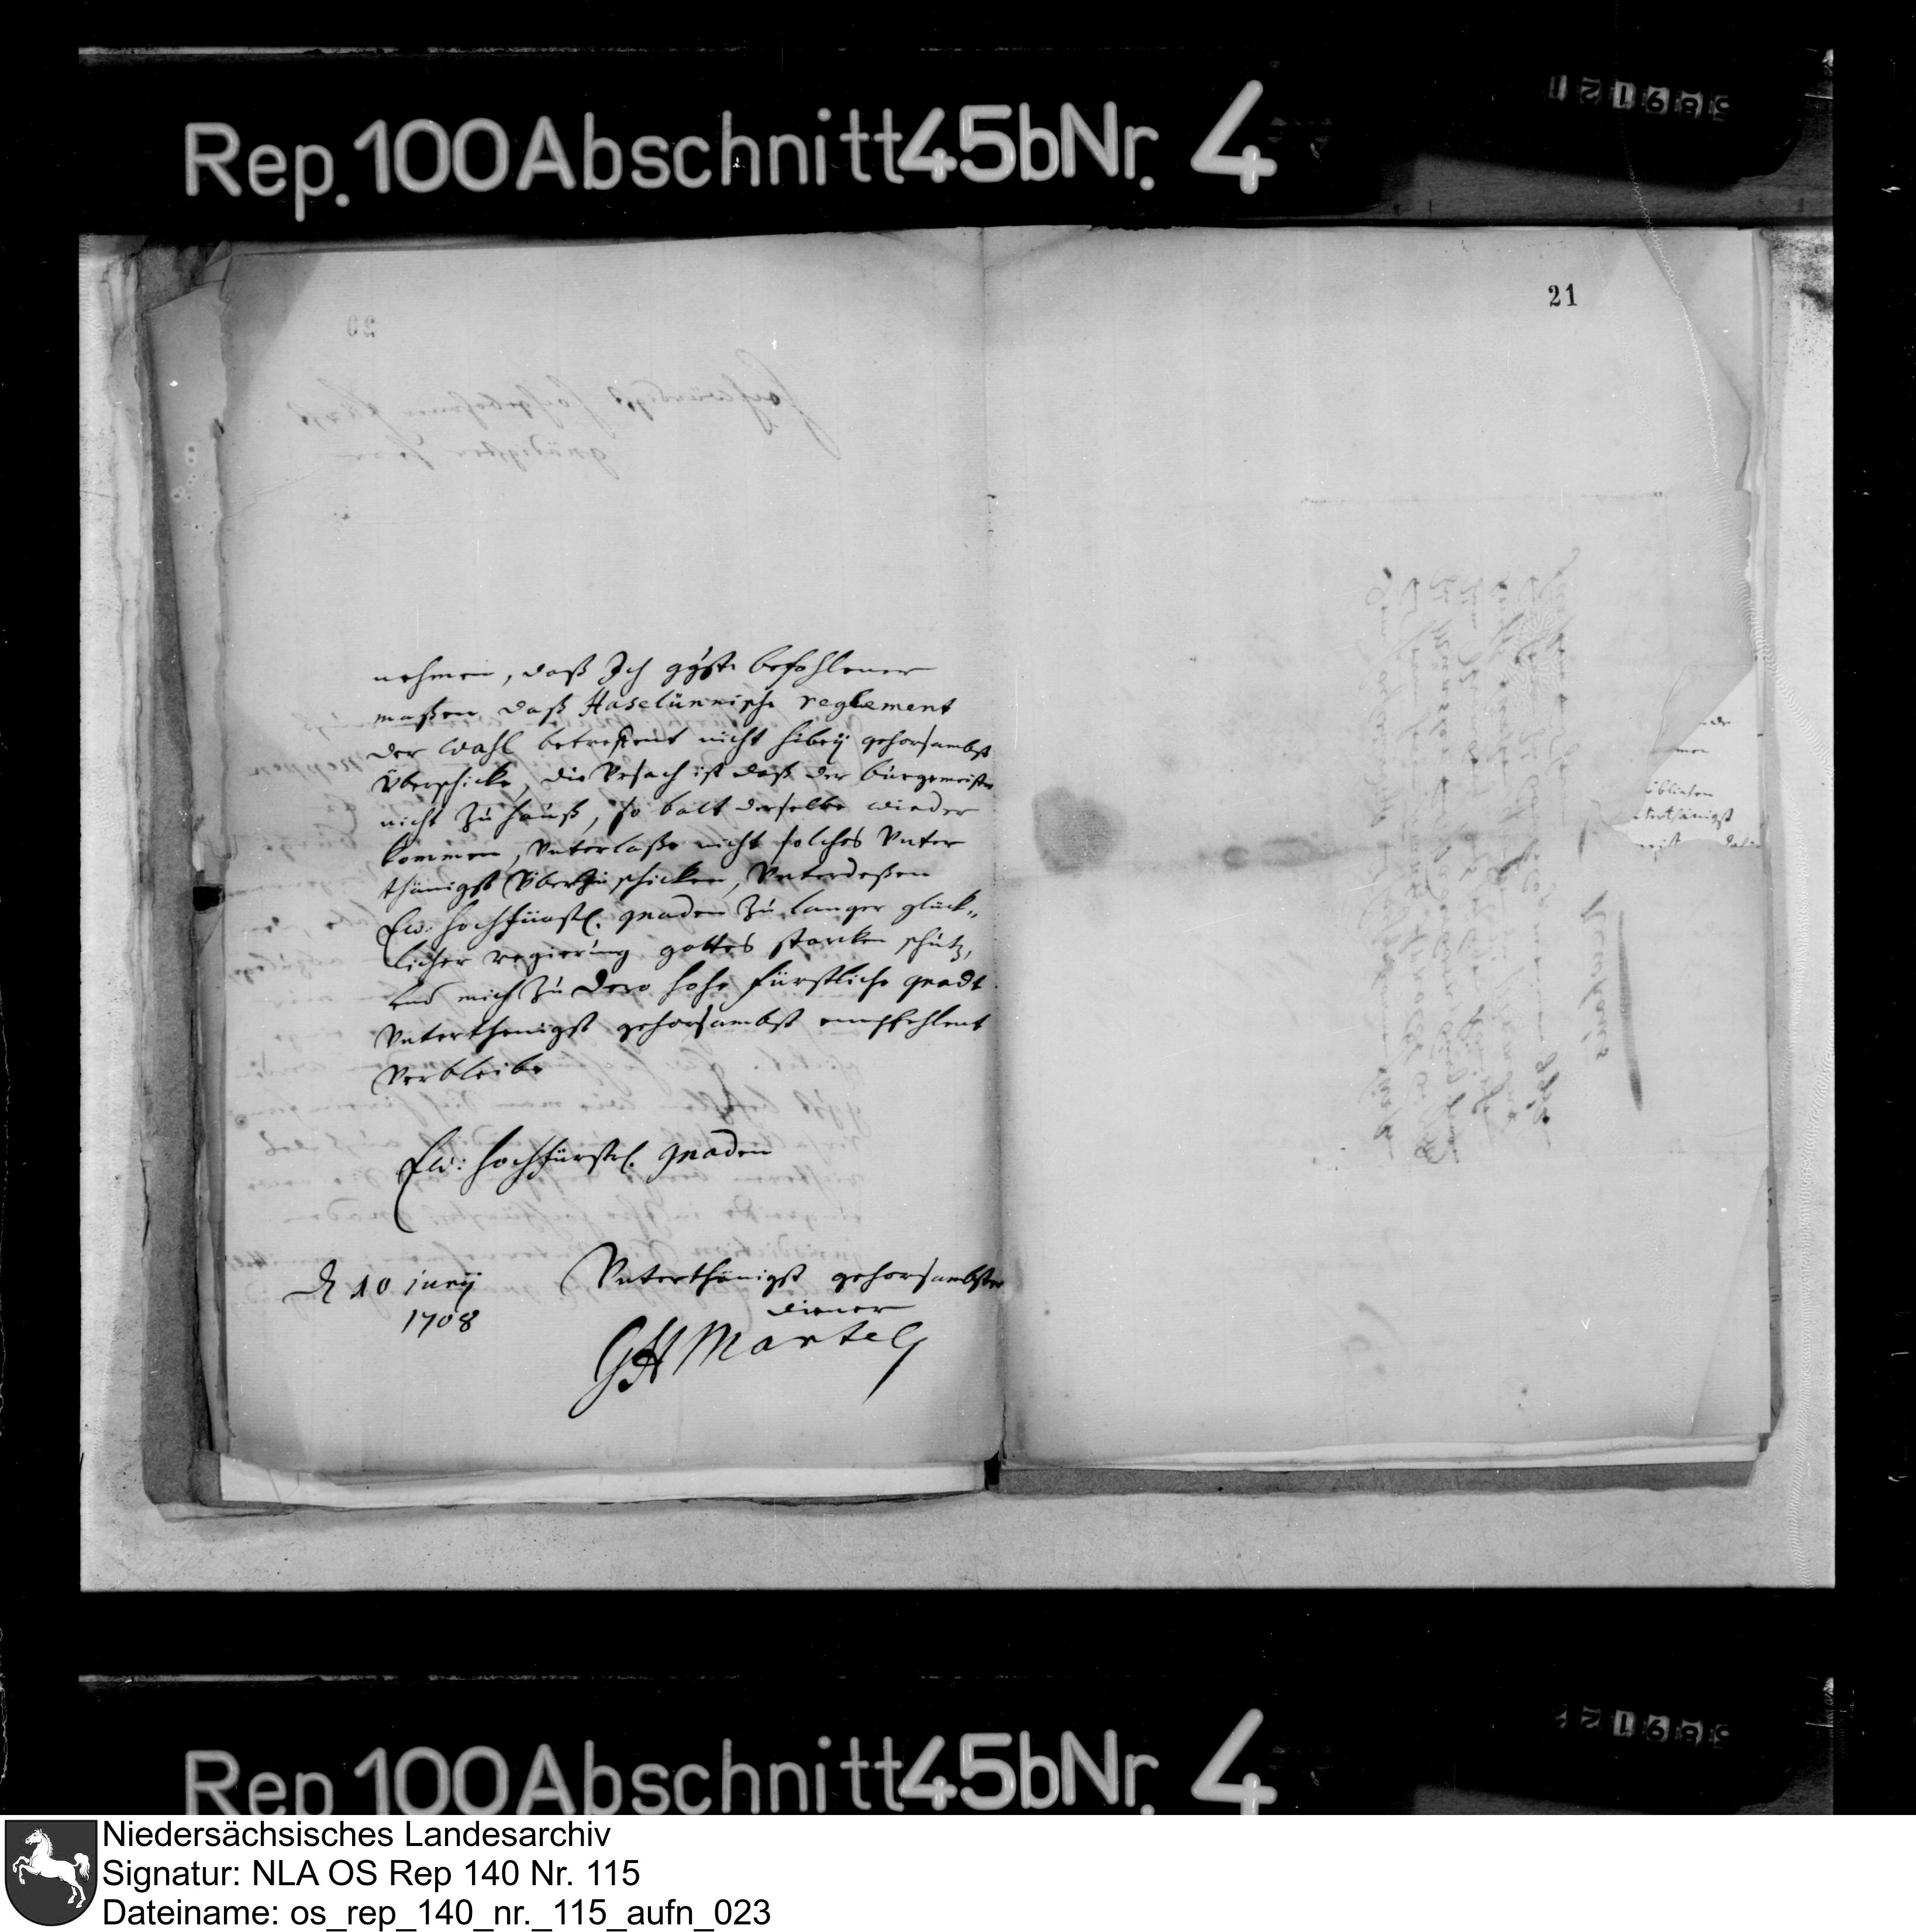 Rep. 100 Abschnitt 45b Nr. 4
21
nehmen, daß Ich ggste befohlener
maßen daß Haselünnische reglement
der wahl betrefent nicht hibey gehorsambst
überschicke, die Vrsach ist daß der bürgemeister
nicht zu hauß, so balt derselbe wieder
kommen, Vnterlaße nicht solches Vnter
thänigst überzuschicken, Vnterdeßen
Ew: hochfürstl. gnaden zu langer glück„
licher regierung gottes starcken schutz,
und mich zu Dero hohe fürstliche gnadt
Vnterthenigst gehorsambst empfehlent
Verbleibe
Ew: hochfürstl. gnaden
d 10 junij
1708
Vnterthänigst gehorsambster
diener
GH Martels
Rep 100 Abschnitt 45b Nr. 4
Niedersächsisches Landesarchiv
Signatur: NLA OS Rep 140 Nr. 115
Dateiname: os_rep_140_nr._115_aufn_023